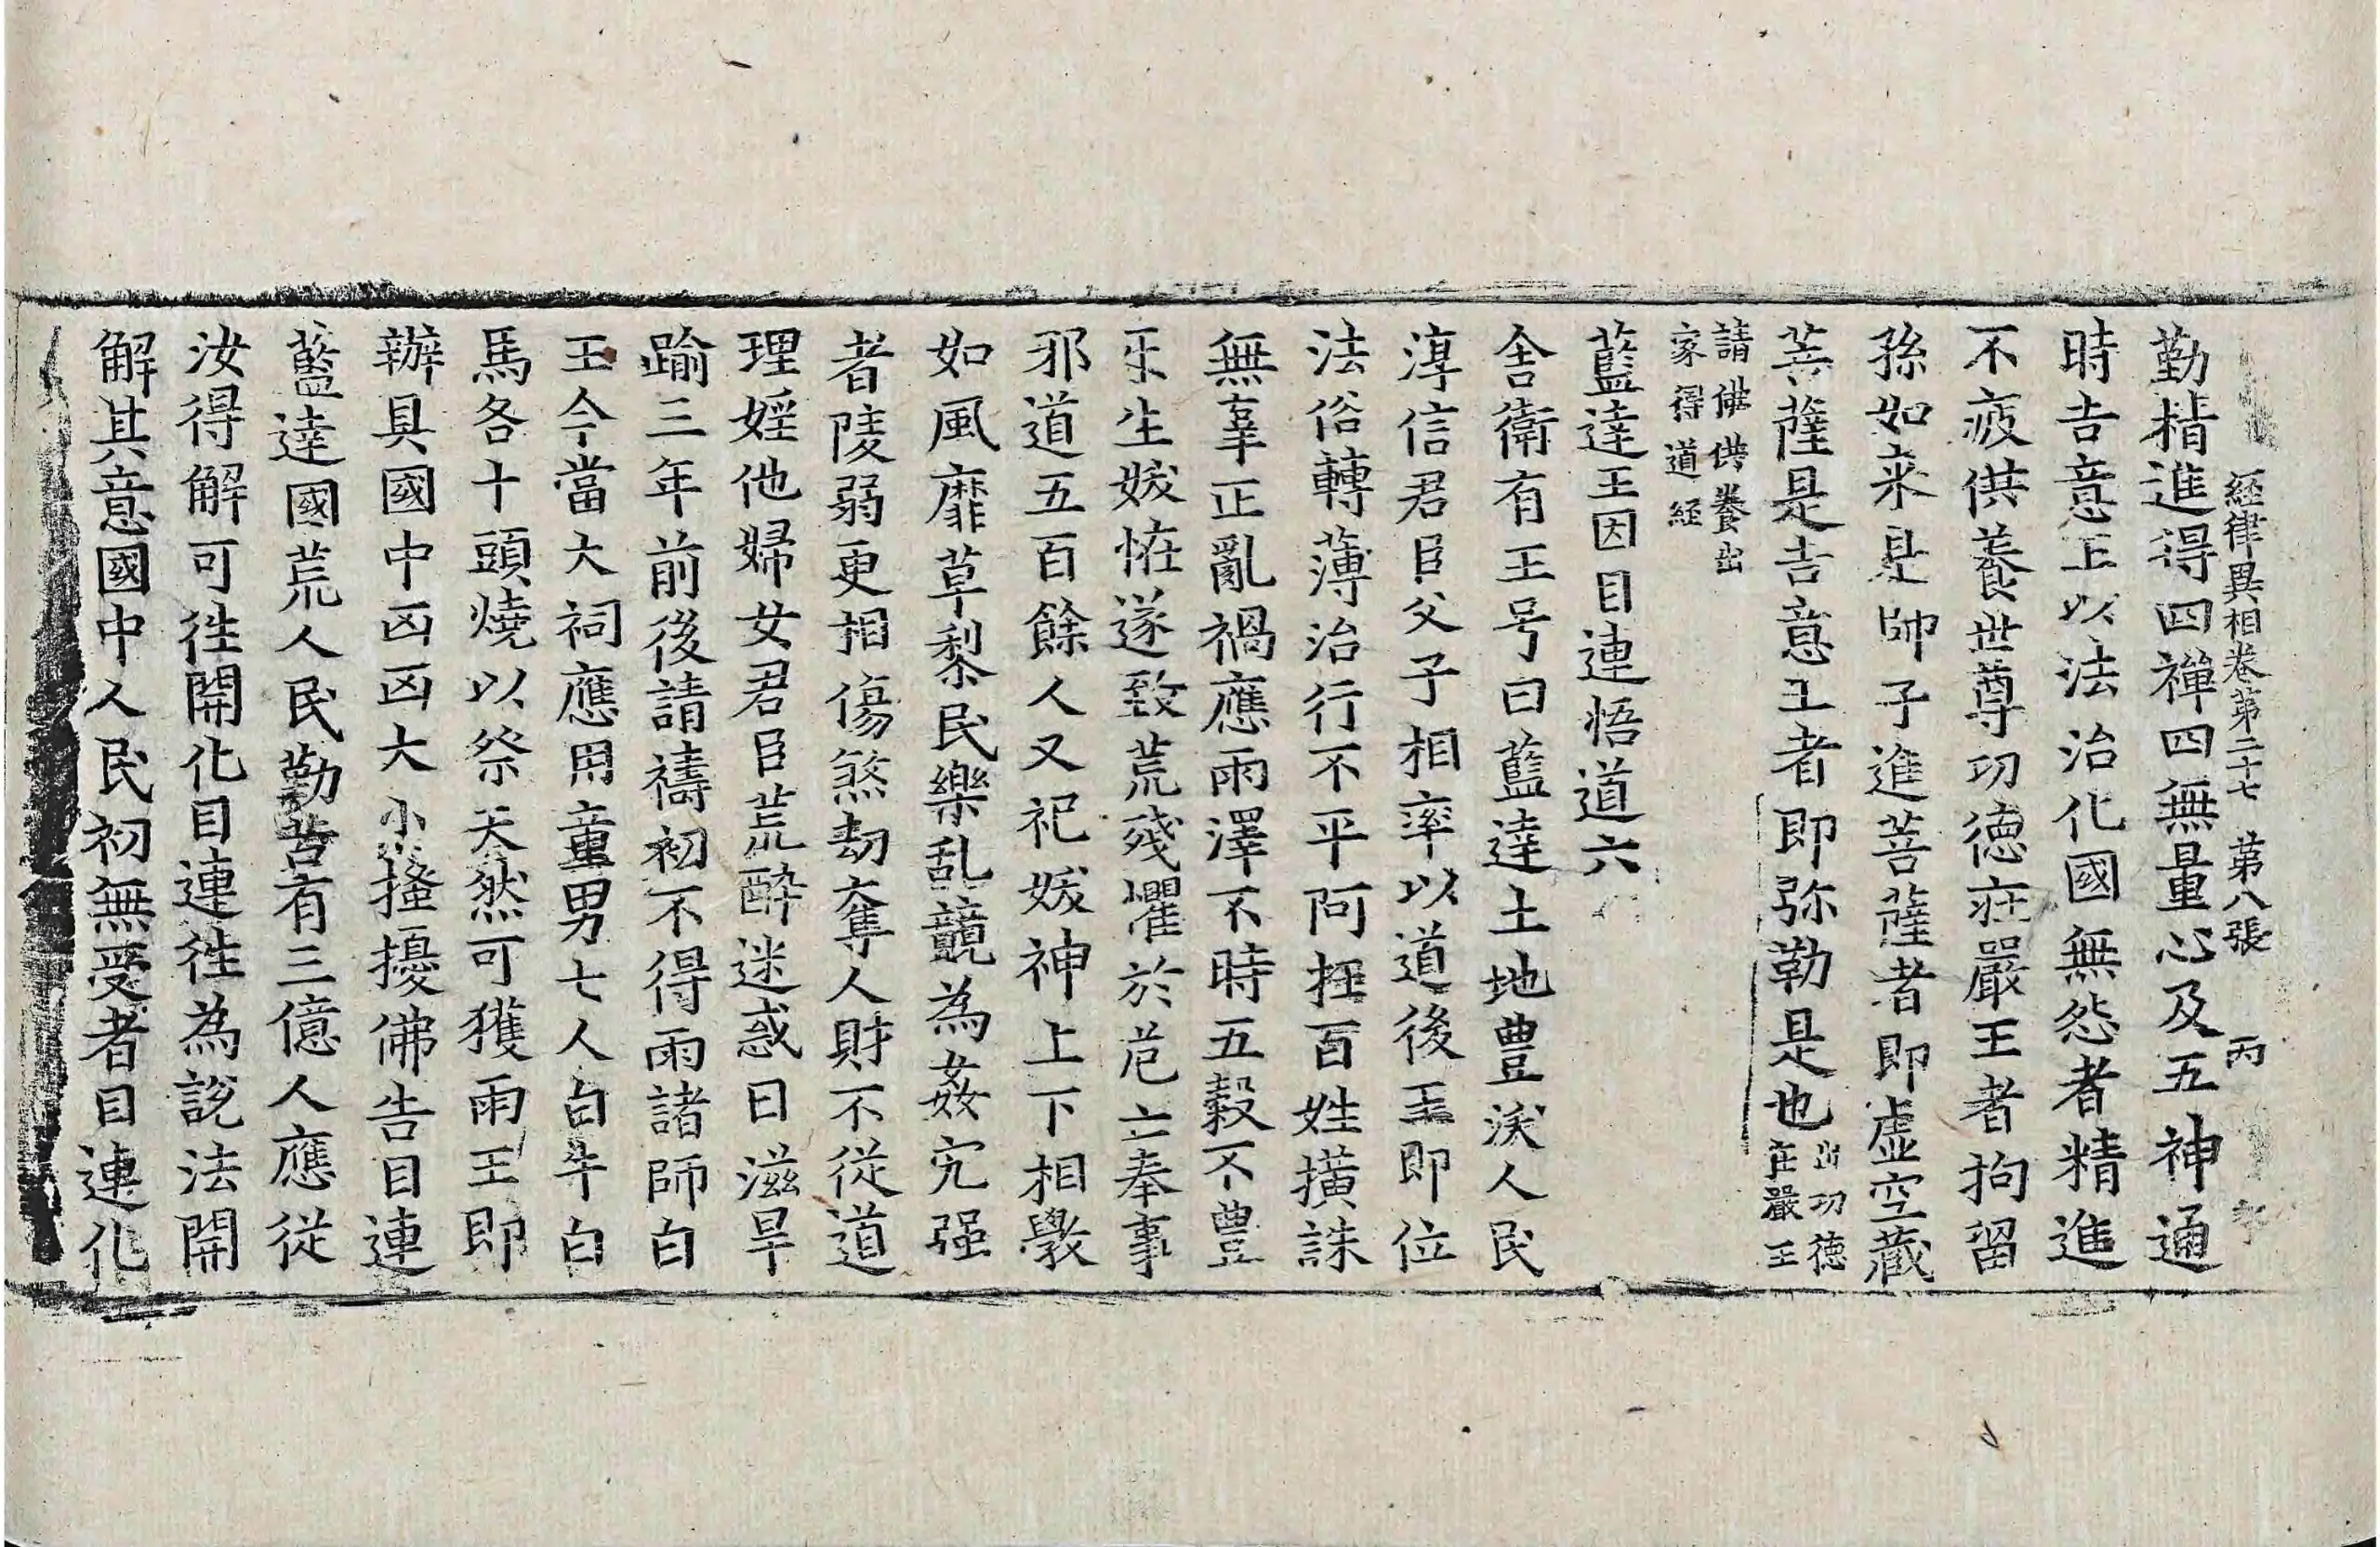 経律異相卷第二十七　第八張　丙
勤精進得四禪四無量心及五神通
時吉意王以法治化國無怨者精進
不疲供養世尊功德庄嚴王者拘留
孫如来是師子進菩薩者即虛空藏
菩薩是吉意王者即弥勒是也出功德庄嚴王
請佛供養出家得道経
藍達王因目連悟道六
舍衛有王号曰藍達土地豊渁人民
淳信君臣父子相率以道後王即位
法俗轉薄治行不平阿抂百姓撗誅
無辜正亂禍應雨澤不時五穀不豊
乐生妭恠遂致荒殘懼於危亡奉事
邪道五百餘人又祀妭神上下相斆
如風靡草黎民樂乱競為姦宄强
者陵弱更相傷煞劫奪人財不從道
理婬他婦女君臣荒酔迷惑日滋旱
踰三年前後請禱初不得雨諸師白
王今當大祠應用童男七人白牛白
馬各十頭燒以祭天然可獲雨王即
辦具國中凶凶大小搔擾佛告目連
藍達國荒人民勤苦有三億人應從
汝得解可徃開化目連徃為說法開
解其意國中人民初無受者目連化